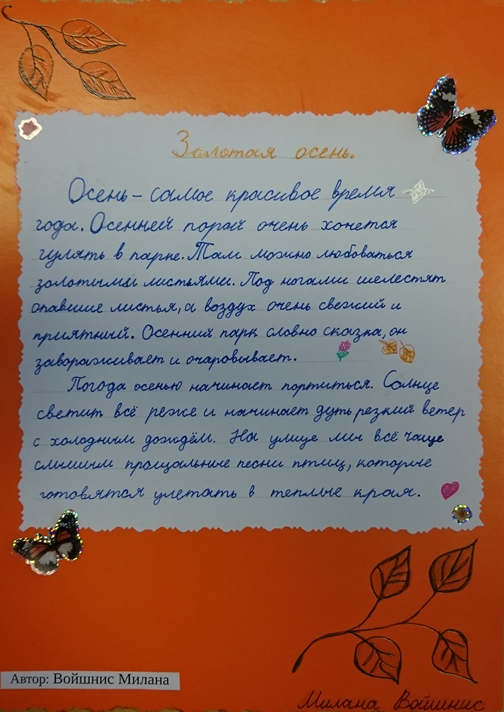 Золотая осень.
Осень – самое красивое время
года. Осенней порой очень хочется
гулять в парке. Там можно любоваться
золотыми листьями. Под ногами шелестят
опавшие листья, а воздух очень свежий и
приятный. Осенний парк словно сказка, он
завораживает и очаровывает.
Погода осенью начинает портиться. Солнце
светит всё реже и начинает дуть резкий ветер
с холодным дождём. На улице мы всё чаще
слышим прощальные песни птиц, которые
готовятся улетать в теплые края.
Автор: Войшнис Милана
Милана Войшнис